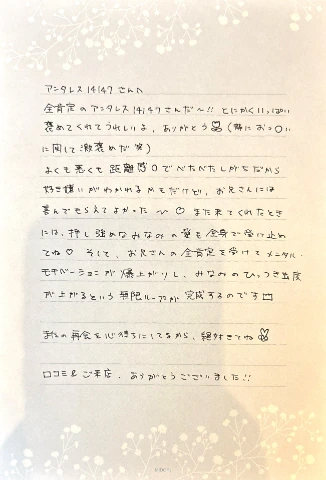 アンタレス14147さんへ
全肯定のアンタレス14147さんだ〜!! とにかくいっぱい
褒めてくれてうれしいよ、ありがとう (特におっ〇い
に関して激褒めだ 笑)
よくも悪くも 距離感0でべたべたしがちだから
好き嫌いがわかれるMだけど、お兄さんには
喜んでもらえてよかった 〜♡ また来てくれたとき
には、押し強めなみなみの愛も全身で受け止め
てね♡ そして、お兄さんの全肯定を受けて メンタル・
モチベーションが爆上がりし、みなみのひっつき度
が上がるという無限ループが完成するのです
またの再会を心待ちにしてるから、絶対きてね
口コミ&ご来店、ありがとうございました!!
MIDORI